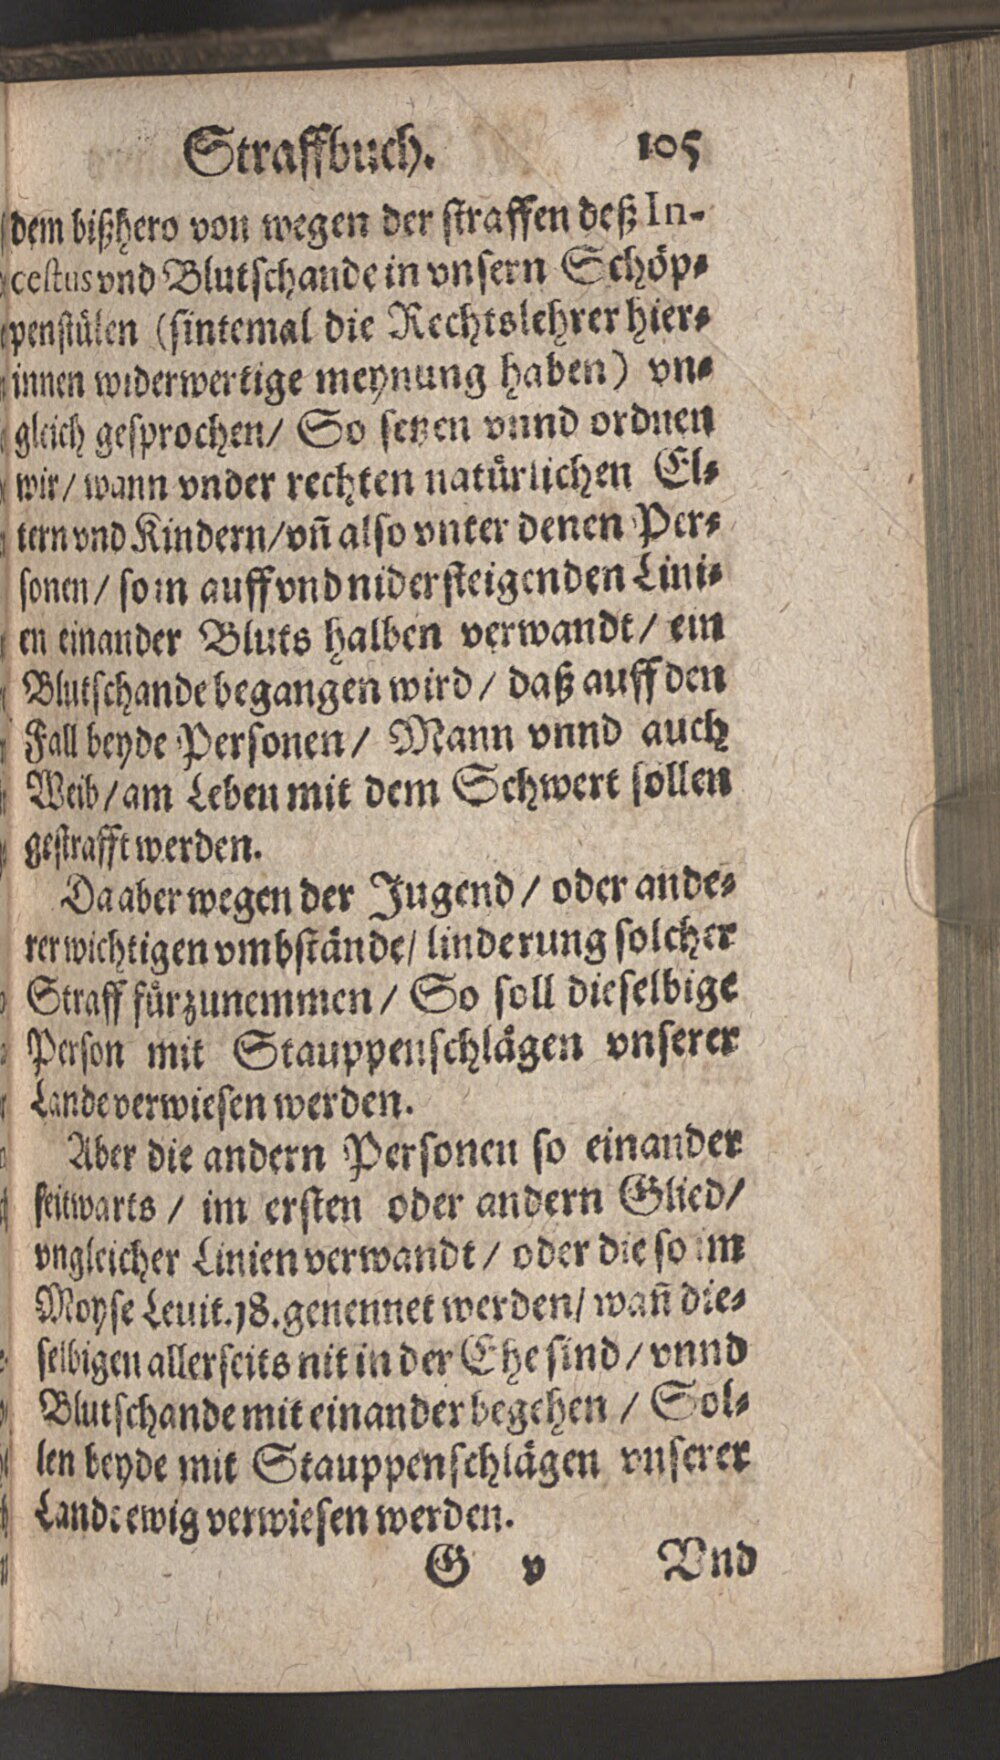 Straffbuch. 105
dem bißhero von wegen der straffen deß In-
cestus vnd Blutschande in vnsern Schöp-
penstülen (sintemal die Rechtslehrer hier-
innen widerwertige meynung haben) vn-
gleich gesprochen/ So setzen vnnd ordnen
wir/ wann vnder rechten natürlichen El-
tern vnd Kindern/ vñ also vnter denen Per-
sonen/ so in auff vnd nidersteigenden Lini-
en einander Bluts halben verwandt/ ein
Blutschande begangen wird/ daß auff den
Fall beyde Personen/ Mann vnnd auch
Weib/ am Leben mit dem Schwert sollen
gestrafft werden.
Da aber wegen der Jugend/ oder ande-
rer wichtigen vmbstände/ linderung solcher
Straff fürzunemmen/ So soll dieselbige
Person mit Stauppenschlägen vnserer
Lande verwiesen werden.
Aber die andern Personen so einander
seitwarts/ im ersten oder andern Glied/
vngleicher Linien verwandt/ oder die so im
Moyse Leuit. 18. genennet werden/ wañ die-
selbigen allerseits nit in der Ehe sind/ vnnd
Blutschande mit einander begehen/ Sol-
len beyde mit Stauppenschlägen vnserer
Lande ewig verwiesen werden.
G v Vnd